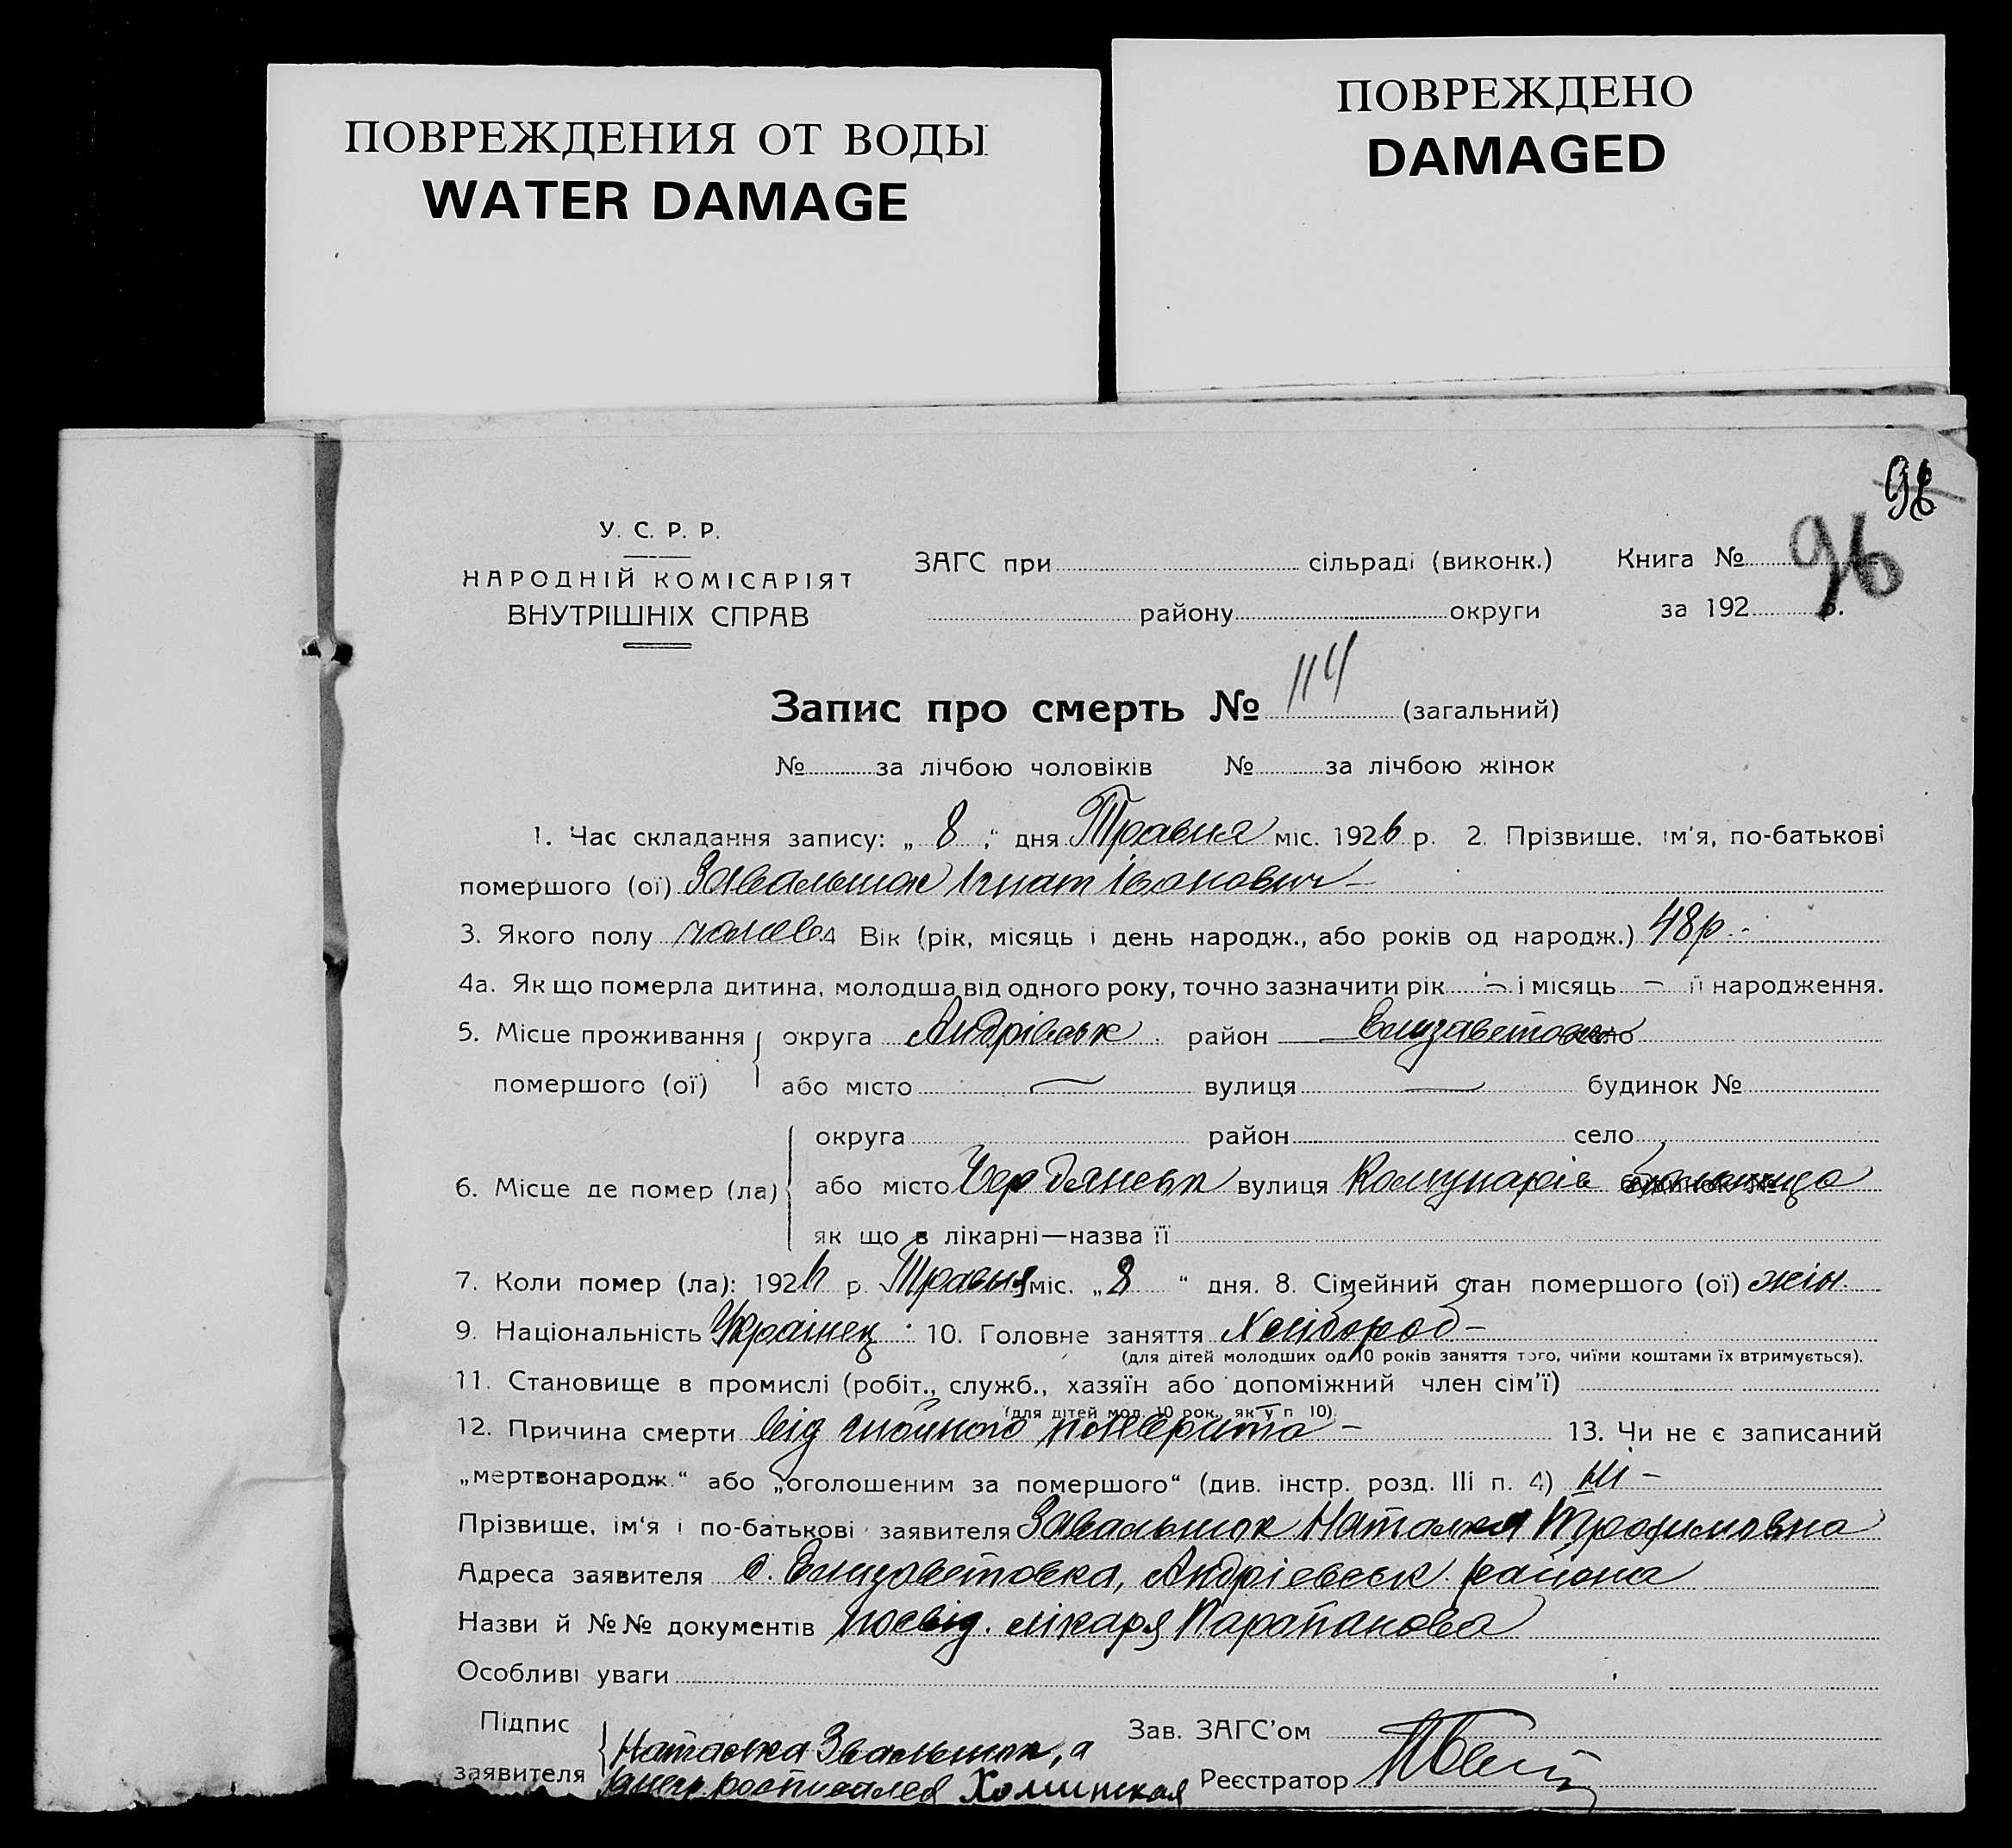 ПОВРЕЖДЕНИЯ ОТ ВОДЫ
WATER DAMAGE
ПОВРЕЖДЕНО
DAMAGED
96
96
У. С. Р. Р.
НАРОДНІЙ КОМІСАРІЯТ
ВНУТРІШНІХ СПРАВ
ЗАГС при сільраді (виконк.) Книга №
району округи за 192 р.
Запис про смерть № 114 (загальний)
№ за лічбою чоловіків № за лічбою жінок
1. Час складання запису: „ 8 “ дня Травня міс. 1926 р. 2. Прізвище, ім'я, по-батькові
помершого (ої) Завальнюк Ігнат Іванович –
3. Якого полу чолов. 4 Вік (рік, місяць і день народж., або років од народж.) 48 р. -
4а. Як що померла дитина, молодша від одного року, точно зазначити рік – і місяць – її народження.
5. Місце проживання округа Андрівськ район Елизаветовк село
помершого (ої) або місто — вулиця — будинок №
округа район село
6. Місце де помер (ла) або місто Бердянськ вулиця Комунарів больница
як що в лікарні—назва її
7. Коли помер (ла): 1926 р. Травня міс. „ 8 “ дня. 8. Сімейний стан помершого (ої) жін.
9. Національність Українец 10. Головне заняття Хлібороб –
(для дітей молодших од 10 років заняття того, чиїми коштами їх втримується).
11. Становище в промислі (робіт., служб., хазяїн або допоміжний член сім'ї)
(для дітей мол. 10 рок., як у п 10)
12. Причина смерти від гнойного – 13. Чи не є записаний
„мертвонародж.“ або „оголошеним за помершого“ (див. інстр. розд. III п. 4) ні –
Прізвище, ім'я і по-батькові заявителя Завальнюк Наталия Трофимовна
Адреса заявителя с. Елизаветовка, Андріевск. района
Назви й №№ документів посвід. лікаря Парапанова
Особливі уваги
Підпис Зав. ЗАГС'ом
Наталка Звальнюк, а
заявителя росписалея Реєстратор